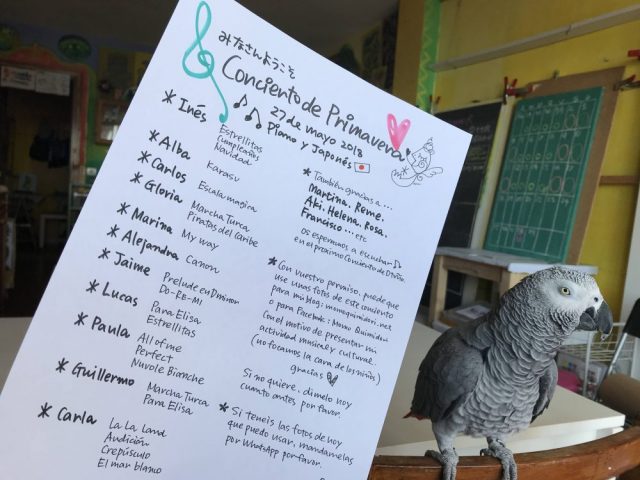 みなさんようこそ
Conciento de Primavera
27 de mayo 2018
Piano y Japonés
* Inés
Estrellitas
Cumpleaños
Navidad
* Alba
Karasu
* Carlos
Escala magica
* Gloria
Marcha Turca
Piratas del Caribe
* Marina
My way
* Alejandra
Canon
* Jaime
Prelude en Dminor
Do-RE-MI
* Lucas
Para Elisa
Estrellitas
* Paula
All of me
Perfect
Nuvole Bianche
* Guillermo
Marcha Turca
Para Elisa
* Carla
La La Land
Audición
Crepúsculo
El mar blanco
* También gracias a ...
Martina. Reme.
Aki. Helena. Rosa.
Francisco... etc
Os esperamos a escuchar
en el próximo Concierto de Otoño
* Con vuestro permiso, puede que
use unas fotos de este concierto
para mi blog:
o para Facebook: Momo Quimidru
Con el motivo de presentar mi
actividad musical y cultural.
(no focamos la cara de los niños)
gracias
Si no quiere. dimelo hoy
cuanto antes por favor.
* Si teneis las fotos de hoy
que puedo usar, mandamelas
por WhatsApp por favor.